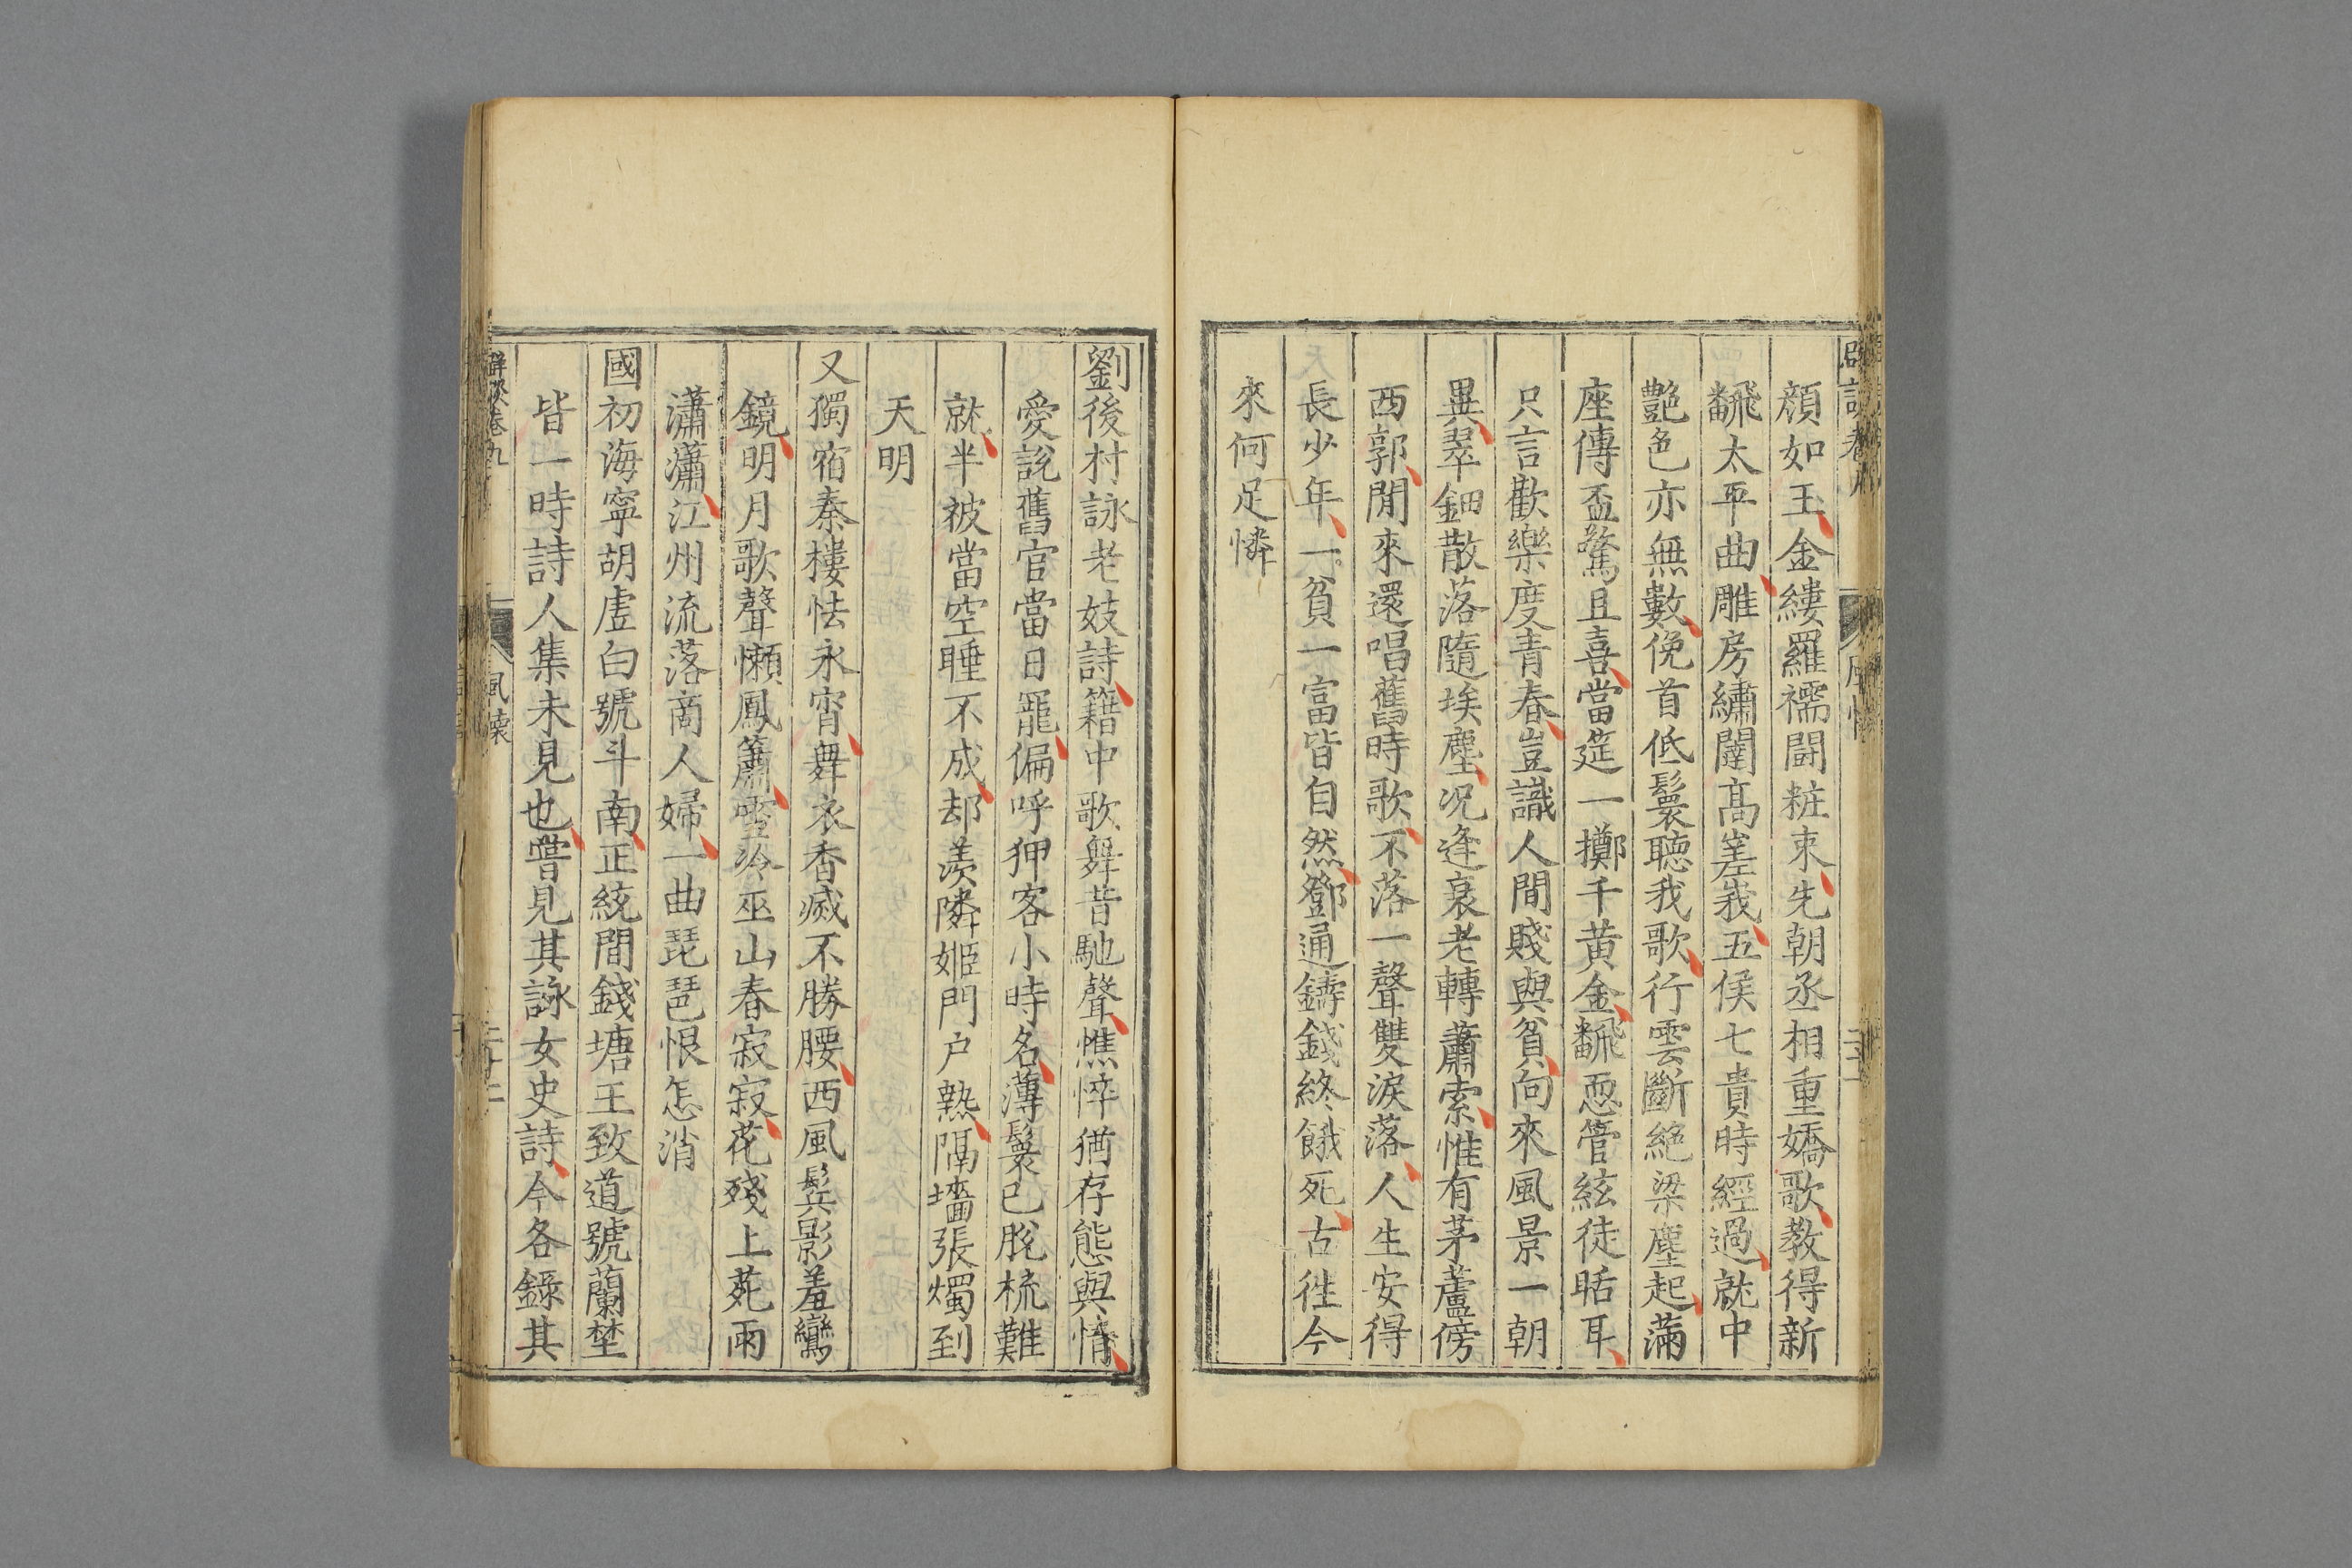 顔如玉金縷羅襦鬪粧束先朝丞相重嬌歌教得新
飜太平曲雕房繡闥髙嵳峩五侯七貴時經過就中
艷色亦無數俛首低鬟聴我歌行雲斷絶梁塵起滿
座傳盃驚且喜當筵一擲千黄金飜惡管絃徒聒耳
只言歡樂度青春豈識人間賤與貧向來風景一朝
異翠鈿散落隨埃塵况逢衰老轉蕭索惟有茅蘆傍
西郭閒來還唱舊時歌不落一聲雙淚落人生安得
長少年一貧一富皆自然鄧通鑄錢終餓死古徃今
來何足憐
劉後村詠老妓詩籍中歌舞昔馳聲憔悴猶存態與情
愛說舊官當日寵偏呼狎客小時名薄鬟已脫梳難
就半被當空睡不成却羨隣姬門户熱隔墻張燭到
天明
又獨宿秦樓怯永宵舞衣香滅不勝腰西風鬂影羞鸞
鏡明月歌聲懶鳳簫雪冷巫山春寂寂花殘上苑雨
瀟瀟江州流落商人婦一曲琵琶恨怎消
國初海寧胡虗白號斗南正統間錢塘王致道號蘭埜
皆一時詩人集未見也嘗見其詠女史詩今各錄其
卷九
風懷